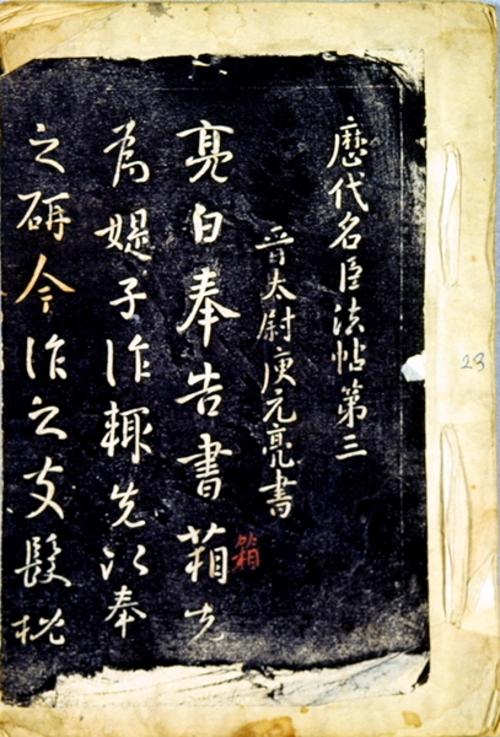 歷代名臣法帖第三
晉太尉庾元亮書
亮白奉告書箱先
箱
為媞子作輙先以奉
之研今作之支髲枕
23